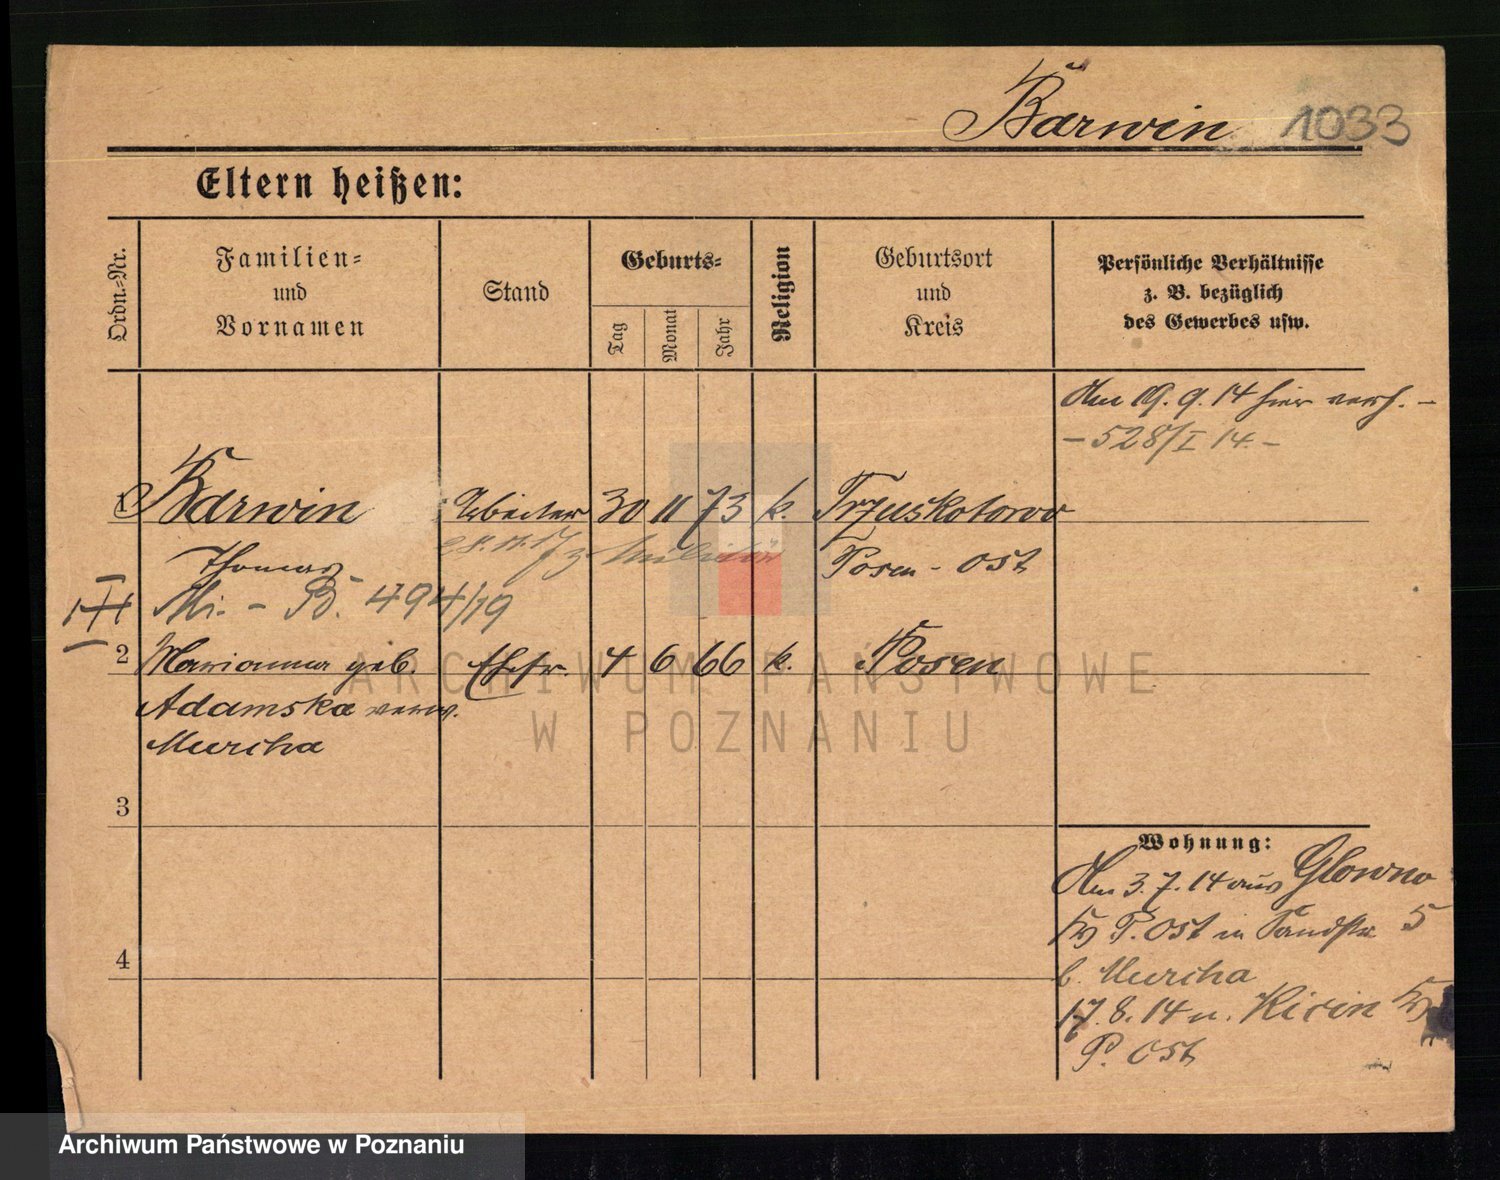 Barwin 1033
Eltern heißen:
Ordn.-Nr.
Familien-
und
Vornamen
Stand
Geburts-
Tag
Monat
Jahr
Religion
Geburtsort
und
Kreis
Persönliche Verhältnisse
z. B. bezüglich
des Gewerbes usw.
Am 19.9.14 hier verh. –
– 528/I 14. –
1 Barwin Arbeiter 30 11 73 k. Trzuskotowo
Thomas
28.11.17 z Militär
Posen - Ost
Mi. - B. 494/19
2 Marianna geb. Ehefr. 4 6 66 k. Posen
Adamska verw.
Murcha
3
4
Wohnung:
Am 3.7.14 aus Glowno
Kr P. Ost in Sandstr 5
b. Murcha
17.8.14 n. Kicin Kr
P. Ost
ARCHIWUM PAŃSTWOWE
W POZNANIU
Archiwum Państwowe w Poznaniu